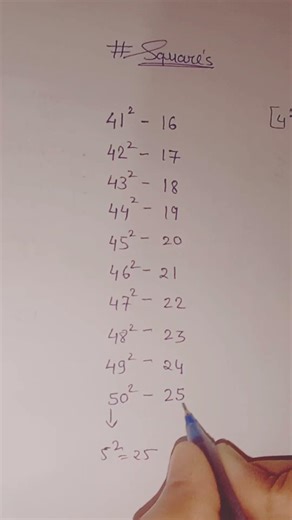 # Square's
41² - 16
[4²
42² - 17
43² - 18
44² - 19
45² - 20
46² - 21
47² - 22
48² - 23
49² - 24
50² - 25
↓
5² = 25